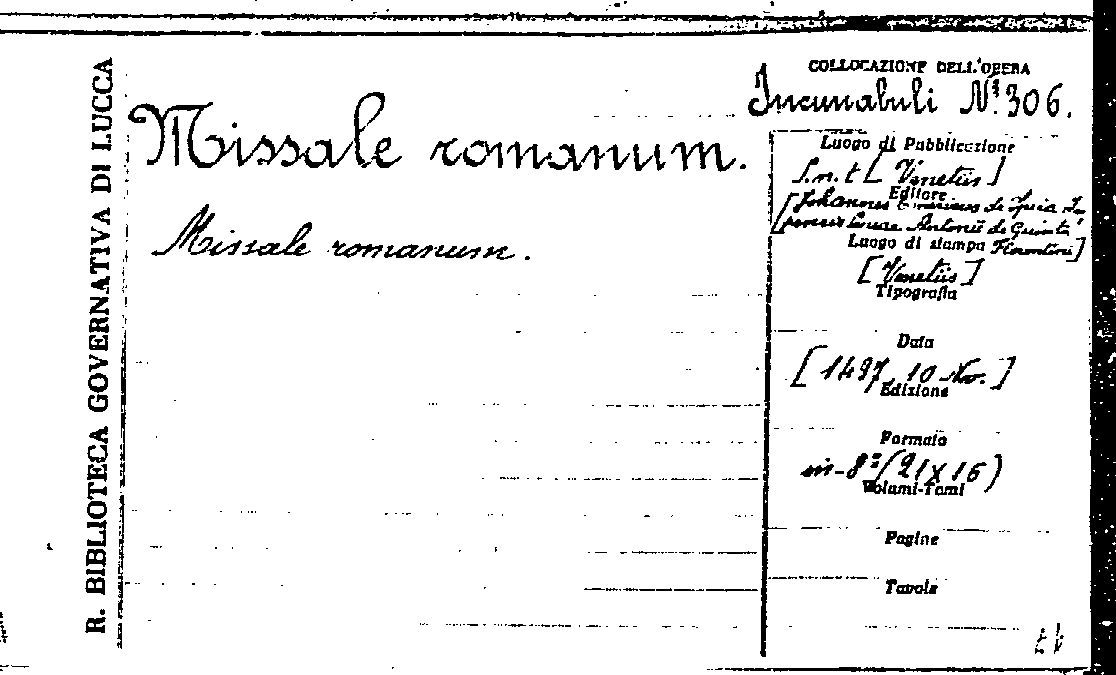 R. BIBLIOTECA GOVERNATIVA DI LUCCA
Missale romanum.
Missale romanum.
COLLOCAZIONE DELL'OPERA
Incunabuli Nº 306.
Luogo di Pubblicazione
S. n. t [Venetiis]
Editore
[Johannes de Spira Im
pensis Lucae Antonii de Giunta
Luogo di stampa Florentini]
[Venetiis]
Tipografia
Data
[1497, 10 Nov.]
Edizione
Formato
in-8º (21 x 16)
Volumi-Tomi
Pagine
Tavole